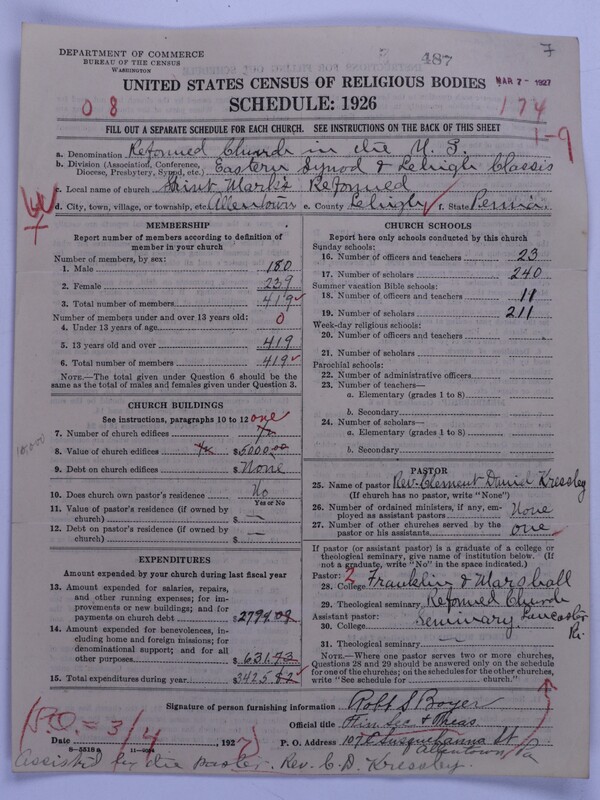 DEPARTMENT OF COMMERCE
BUREAU OF THE CENSUS
WASHINGTON
487
7
UNITED STATES CENSUS OF RELIGIOUS BODIES
MAR 7 - 1927
SCHEDULE: 1926
0 8
174
1-9
FILL OUT A SEPARATE SCHEDULE FOR EACH CHURCH. SEE INSTRUCTIONS ON THE BACK OF THIS SHEET
a. Denomination Reformed Church in the U. S.
b. Division (Association, Conference, Diocese, Presbytery, Synod, etc.) Eastern Synod & Lehigh Classis
c. Local name of church Saint Mark's Reformed
d. City, town, village, or township, etc. Allentown e. County Lehigh f. State Penna.
MEMBERSHIP
Report number of members according to definition of
member in your church
Number of members, by sex:
1. Male 180
2. Female 239
3. Total number of members 419
Number of members under and over 13 years old:
4. Under 13 years of age 0
5. 13 years old and over 419
6. Total number of members 419
NOTE.—The total given under Question 6 should be
same as the total of males and females given under Question 3.
CHURCH BUILDINGS
See instructions, paragraphs 10 to 12
7. Number of church edifices one
8. Value of church edifices $
9. Debt on church edifices $ None
10. Does church own pastor's residence No
Yes or No
11. Value of pastor's residence (if owned by
church) $ —
12. Debt on pastor's residence (if owned by
church) $ —
EXPENDITURES
Amount expended by your church during last fiscal year
13. Amount expended for salaries, repairs,
and other running expenses; for im-
provements or new buildings; and for
payments on church debt $ 2794.09
14. Amount expended for benevolences, in-
cluding home and foreign missions; for
denominational support; and for all
other purposes $ 631.73
15. Total expenditures during year $ 3425.82
CHURCH SCHOOLS
Report here only schools conducted by this church
Sunday schools:
16. Number of officers and teachers 23
17. Number of scholars 240
Summer vacation Bible schools:
18. Number of officers and teachers 11
19. Number of scholars 211
Week-day religious schools:
20. Number of officers and teachers
21. Number of scholars
Parochial schools:
22. Number of administrative officers
23. Number of teachers—
a. Elementary (grades 1 to 8)
b. Secondary
24. Number of scholars—
a. Elementary (grades 1 to 8)
b. Secondary
PASTOR
25. Name of pastor Rev. Clement David Kressley
(If church has no pastor, write "None")
26. Number of ordained ministers, if any, em-
ployed as assistant pastors None
27. Number of other churches served by the
pastor or his assistants one
If pastor (or assistant pastor) is a graduate of a college or
theological seminary, give name of institution below. (If
not a graduate, write "No" in the space indicated.)
Pastor: 2
28. College Franklin & Marshall
29. Theological seminary Reformed Church
Assistant pastor: Seminary Lancaster Pa.
30. College
31. Theological seminary —
NOTE.—Where one pastor serves two or more churches,
Questions 28 and 29 should be answered only on the schedule
for one of the churches; on the schedules for the other churches,
write "See schedule for church."
Signature of person furnishing information Robt S Boyer
Official title Fin Sec. & Treas.
Date 192 7 P. O. Address 107 E Susquehanna St
Allentown Pa
8—551B 11—
P.O. = 3/4
Assisted by the Pastor. Rev. C. D. Kressley.